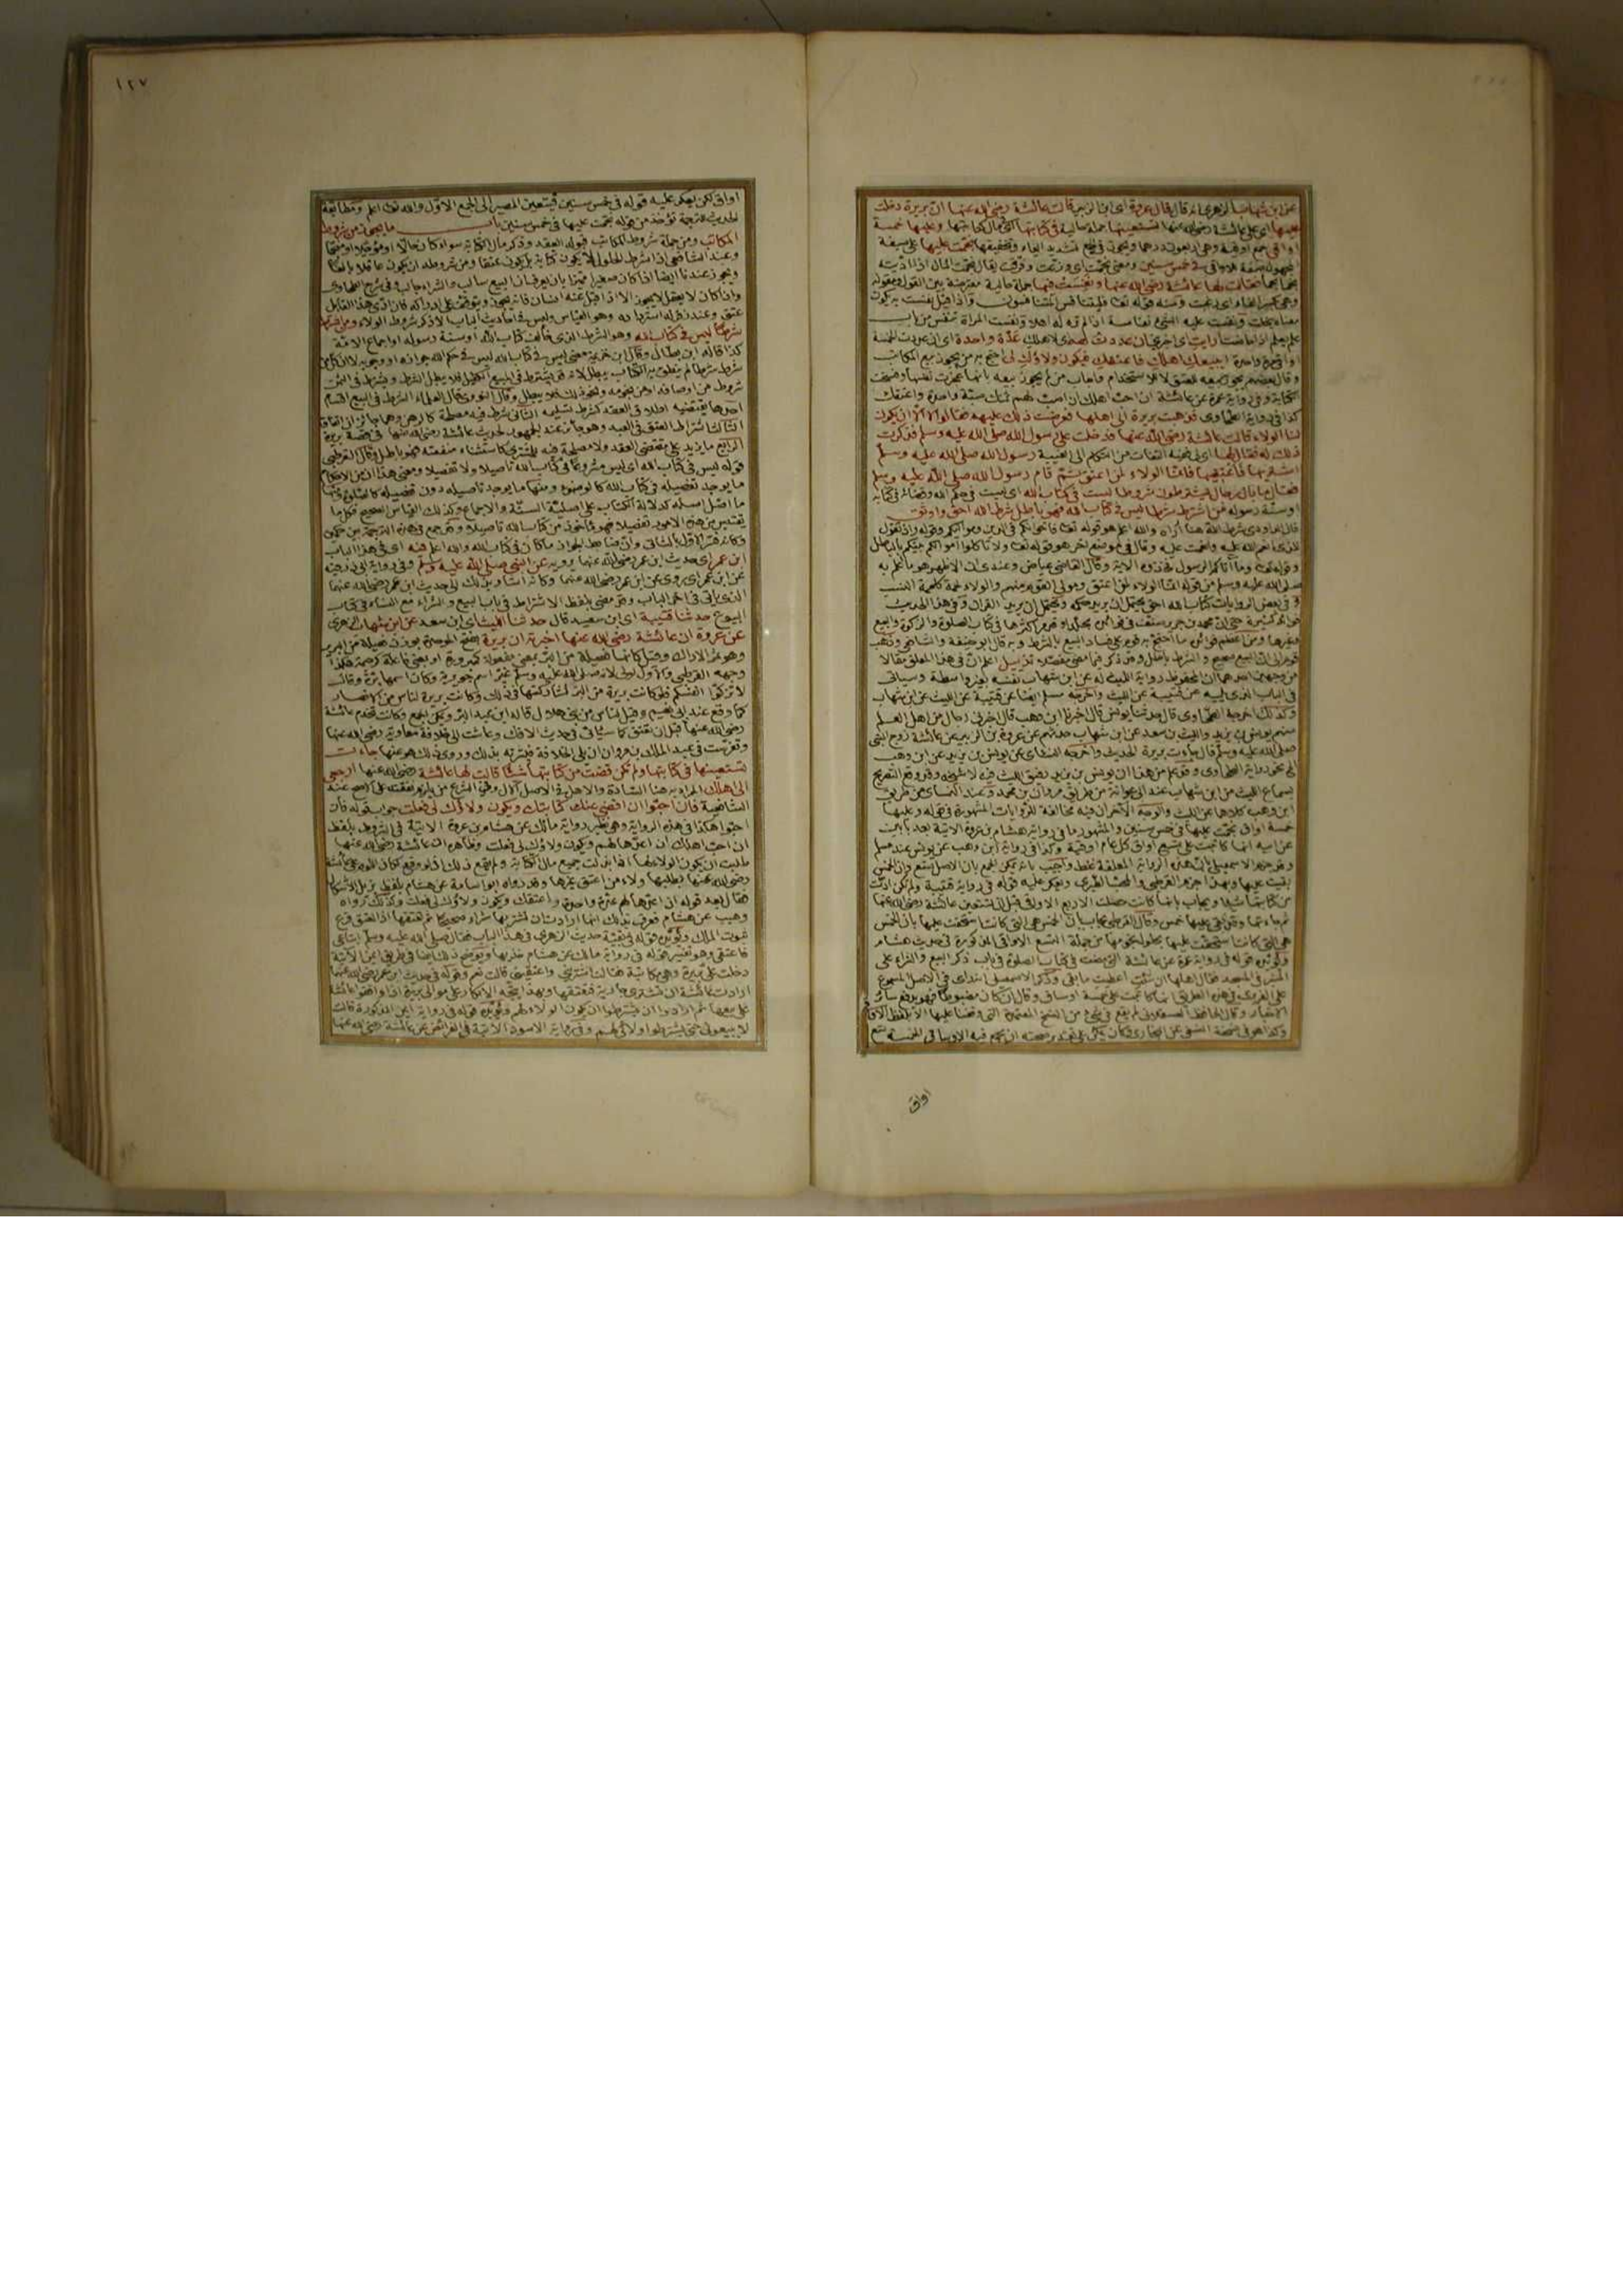 عن ابن شهاب الزهري انه قال قال عروة اى ابن الزبير قالت عائشة رضى الله عنها ان بريرة دخلت
عليها اى على عائشة رضى الله عنها تستعينها جملة حالية فى كتابتها اى فى مال كتابتها وعليها خمسة
اواقى جمع اوقية وهى اربعون درهما ويجوز فى الجمع تشديد الياء وتخفيفها نجمت عليها على صيغة
المجهول صفة للاواقى فى خمس سنين ومعنى نجمت اى وزعت وفرقت يقال نجمت المال اذا اديته
نجوما فقالت لها عائشة رضى الله عنها ونفست فيها جملة حالية معترضة بين القول ومقوله
وهى بكسر الفاء اى رغبت ومنه قوله تعالى فليتنافس المتنافسون واذا قيل نفست به يكون
معناه بخلت ونفست عليه الشئ نفاسة اذا لم تره له اهلا ونفست المراة تنفس من باب
علم يعلم اذا حاضت ارايت اى اخبرينى ان عددت لهم اى لاهلك عدة واحدة اى ان عددت الخمسة
اواقى مرة واحدة ايبيعك اهلك فاعتقك فيكون ولاؤك لى احتج به من يجوز بيع المكاتب
وقال بعضهم يجوز بيعه للعتق لا للاستخدام واجاب من لم يجوز بيعه بانها عجزت نفسها وفسخت
الكتابة وفى رواية عمرة عن عائشة ان احب اهلك ان اصب لهم ثمنك صبة واحدة واعتقك
كذا فى رواية الطحاوى فذهبت بريرة الى اهلها فعرضت ذلك عليهم فقالوا لا الا ان يكون
لنا الولاء قالت عائشة رضى الله عنها فدخلت على رسول الله صلى الله عليه وسلم فذكرت
ذلك له فقال لها اى لعائشة التفات من التكلم الى الغيبة رسول الله صلى الله عليه وسلم
اشتريها فاعتقيها فانما الولاء لمن اعتق ثم قام رسول الله صلى الله عليه وسلم
فقال ما بال رجال يشترطون شروطا ليست فى كتاب الله اى ليست فى حكم الله وقضائه فى كتابه
او سنة رسوله من اشترط شرطا ليس فى كتاب الله فهو باطل شرط الله احق واوثق
قال الداودى شرط الله هنا اراه والله اعلم هو قوله تعالى فاخوانكم فى الدين ومواليكم وقوله واذ تقول
للذى انعم الله عليه وانعمت عليه وقال فى موضع اخر هو قوله تعالى ولا تاكلوا اموالكم بينكم بالباطل
وقوله تعالى وما آتاكم الرسول فخذوه الاية وقال القاضى عياض وعندى ان الاظهر هو ما اعلم به
صلى الله عليه وسلم من قوله انما الولاء لمن اعتق ومولى القوم منهم والولاء لحمة كلحمة النسب
وفى بعض الروايات كتاب الله احق يحتمل ان يريد حكمه ويحتمل ان يريد القران وفى هذا الحديث
فوائد كثيرة حتى ان محمد بن جرير صنف فى فوائده مجلدا وقد مر اكثرها فى كتاب الصلوة والزكوة والبيع
وغيرها ومن اعظم فوائده ما احتج به قوم على فساد البيع بالشرط وبه قال ابو حنيفة والشافعى وذهب
قوم الى ان البيع صحيح والشرط باطل وقد ذكر فيما مضى مفصلا تذييل اعلم ان فى هذا المعلق مقالا
من وجهين احدهما ان المحفوظ رواية الليث له عن ابن شهاب نفسه بغير واسطة وسياتى
فى الباب الذى يليه عن قتيبة عن الليث واخرجه مسلم ايضا عن قتيبة عن الليث عن ابن شهاب
وكذلك اخرجه الطحاوى قال حدثنا يونس قال اخبرنا ابن وهب قال اخبرنى رجال من اهل العلم
منهم يونس بن يزيد والليث بن سعد عن ابن شهاب حدثهم عن عروة بن الزبير عن عائشة زوج النبى
صلى الله عليه وسلم قال جاءت بريرة الحديث واخرجه النسائى عن يونس بن يزيد عن ابن وهب
الى نحو رواية الطحاوى وقد علم من هذا ان يونس بن يزيد رفيق الليث فيه لا شيخه وقد وقع التصريح
بسماع الليث من ابن شهاب عند ابى عوانة من طريق مروان بن محمد وعند النسائى من طريق
ابن وهب كلاهما عن الليث والوجه الآخر ان فيه مخالفة للروايات المشهورة فى قوله وعليها
خمسة اواق نجمت عليها فى خمس سنين والمشهور ما فى رواية هشام بن عروة الاتية بعد بابين
عن ابيه انها كاتبت على تسع اواق كل عام اوقية وكذا فى رواية ابن وهب عن يونس عند مسلم
وقد جزم الاسمعيلى بان هذه الرواية المعلقة غلط واجيب بانه يمكن الجمع بان الاصل تسع وان الخمس
بقيت عليها وبهذا جزم القرطبى والمحب الطبرى ويعكر عليه قوله فى رواية قتيبة ولم تكن ادت
من كتابتها شيئا ويجاب بانها كانت حصلت الاربع الاواق قبل ان تستعين عائشة رضى الله عنها
ثم جاءتها وقد بقى عليها خمس وقال القرطبى يجاب بان الخمس هى التى كانت استحقت عليها بان الخمس
هى التى كانت استحقت عليها بحلول نجومها من جملة التسع الاواقى المذكورة فى حديث هشام
ويؤيده قوله فى رواية عمرة عن عائشة التى مضت فى كتاب الصلوة فى باب ذكر البيع والشراء على
المنبر فى المسجد فقال اهلها ان شئت اعطيت ما بقى وذكر الاسمعيلى انه راى فى الاصل المسموع
على الفربرى فى هذه الطريق انها كاتبت على خمسة اوساق وقال ان كان مضبوطا فهو يدفع سائر
الاخبار وقال الحافظ العسقلانى لم يقع فى شئ من النسخ المعتمدة التى وقفنا عليها الا بلفظ الاواقى
وكذا هو فى نسخة النسفى عن البخارى وكان يمكن على تقدير صحته ان يجمع قيمة الاوساق الخمسة تسع
اواق
١٢٧
اواق لكن يعكر عليه قوله فى خمس سنين فيتعين المصير الى الجمع الاول والله تعالى اعلم ومطابقة
الحديث للترجمة تؤخذ من قوله نجمت عليها فى خمس سنين باب ما يجوز من شروط
المكاتب ومن جملة شروط المكاتب قبوله العقد وذكر مال الكتابة سواء كان حالا او مؤجلا او منجما
وعند الشافعى اذا شرط الحلول لا يكون كتابة بل يكون عتقا ومن شروطه ان يكون عاقلا بالغا
ويجوز عندنا ايضا اذا كان صغيرا مميزا بان يعرف ان البيع سالب والشراء جالب وفى شرح الطحاوى
وان كان لا يعقل لا يجوز الا اذا قبل عنه انسان فانه يجوز ويتوقف على ادراكه فان ادى هذا القابل
عتق وعند زفر له استرداده وهو القياس وليس فى احاديث الباب الا ذكر شروط الولاء ومن اشترط
شرطا ليس فى كتاب الله وهو الشرط الذى خالف كتاب الله او سنة رسوله او اجماع الامة
كذا قاله ابن بطال وقال ابن خزيمة معنى ليس فى كتاب الله ليس فى حكم الله جوازه او وجوبه لا ان كل من
شرط شرطا لم ينطق به الكتاب يبطل لانه قد يشترط فى البيع الكفيل فلا يبطل الشرط ويشترط فى الثمن
شروط من اوصافه او من نجومه ونحو ذلك فلا يبطل وقال النووى قال العلماء الشرط فى البيع اقسام
احدها يقتضيه اطلاق العقد كشرط تسليمه الثانى شرط فيه مصلحة كالرهن وهما جائزان اتفاقا
الثالث اشتراط العتق فى العبد وهو جائز عند الجمهور لحديث عائشة رضى الله عنها فى قصة بريرة
الرابع ما يزيد على مقتضى العقد ولا مصلحة فيه للمشترى كاستثناء منفعته فهو باطل وقال القرطبى
قوله ليس فى كتاب الله اى ليس مشروعا فى كتاب الله تاصيلا ولا تفصيلا ومعنى هذا ان من الاحكام
ما يوجد تفصيله فى كتاب الله كالوضوء ومنها ما يوجد تاصيله دون تفصيله كالصلوة ومنها
ما اصل اصله كدلالة الكتاب على اصلية السنة والاجماع وكذلك القياس الصحيح فكل ما
يقتبس من هذه الاصول تفصيلا فهو ماخوذ من كتاب الله تاصيلا وقد جمع فى هذه الترجمة بين حكمين
وكانه فسر الاول بالثانى وان ضابط الجواز ما كان فى كتاب الله والله اعلم فيه اى فى هذا الباب
ابن عمر اى حديث ابن عمر رضى الله عنهما يرويه عن النبى صلى الله عليه وسلم وفى رواية ابى ذر فيه
عن ابن عمر اى روى عن ابن عمر رضى الله عنهما وكانه اشار بذلك الى حديث ابن عمر رضى الله عنهما
الذى ياتى فى اخر الباب وقد مضى بلفظ الاشتراط فى باب البيع والشراء مع النساء فى كتاب
البيوع حدثنا قتيبة اى ابن سعيد قال حدثنا الليث اى ابن سعد عن ابن شهاب الزهرى
عن عروة ان عائشة رضى الله عنها اخبرته ان بريرة بفتح الموحدة بوزن فعيلة من البرير
وهو ثمر الاراك وقيل كانها فعيلة من البر بمعنى مفعولة كمبرورة او بمعنى فاعلة كرحيمة هكذا
وجهه القرطبى والاول اولى لانه صلى الله عليه وسلم غير اسم جويرية وكان اسمها برة وقال
لا تزكوا انفسكم فلو كانت بريرة من البر لشاركتها فى ذلك وكانت بريرة لناس من الانصار
كما وقع عند ابى نعيم وقيل لناس من بنى هلال قاله ابن عبد البر ويمكن الجمع وكانت تخدم عائشة
رضى الله عنها قبل ان تعتق كما سياتى فى حديث الافك وعاشت الى خلافة معاوية رضى الله عنها
وتفرست فى عبد الملك بن مروان ان يلى الخلافة فبشرته بذلك وروى ذلك هو عنها جاءت
تستعينها فى كتابتها ولم تكن قضت من كتابتها شيئا قالت لها عائشة رضى الله عنها ارجعى
الى اهلك المراد به هنا السادة والاهل فى الاصل الآل وفى الشرع من يلزم نفقته على الاصح عند
الشافعية فان احبوا ان اقضى عنك كتابتك ويكون ولاؤك لى فعلت جواب قوله فان
احبوا هكذا فى هذه الرواية وهى نظير رواية مالك عن هشام بن عروة الاتية فى الشروط بلفظ
ان احب اهلك ان اعدها لهم ويكون ولاؤك لى فعلت وظاهره ان عائشة رضى الله عنها
طلبت ان يكون الولاء لها اذا بذلت جميع مال الكتابة ولم يقع ذلك اذ لو وقع لكان اللوم على عائشة
رضى الله عنها بطلبها ولاء من اعتق غيرها وقد رواه ابو اسامة عن هشام بلفظ يزيل الاشكال
فقال بعد قوله ان اعدها لهم عدة واحدة واعتقك ويكون ولاؤك لى فعلت وكذلك رواه
وهيب عن هشام فعرف بذلك انها ارادت ان تشتريها شراء صحيحا ثم تعتقها اذ العتق فرع
ثبوت الملك ويؤيده قوله فى بقية حديث الزهرى فى هذا الباب فقال صلى الله عليه وسلم ابتاعى
فاعتقى وهو تفسير قوله فى رواية مالك عن هشام خذيها ويوضح ذلك ايضا فى طريق ايمن الاتية
دخلت على بريرة وهى مكاتبة فقالت اشترينى واعتقينى قالت نعم وقوله فى حديث ابن عمر رضى الله عنهما
ارادت عائشة ان تشترى جارية فتعتقها وبهذا يتجه الانكار على موالى بريرة اذ وافقوا عائشة
على بيعها ثم ارادوا ان يشترطوا ان يكون الولاء لهم ويؤيده قوله فى رواية ايمن المذكورة قالت
لا يبيعونى حتى يشترطوا ولائى لهم وفى رواية الاسود الاتية فى الفرائض عن عائشة رضى الله عنها